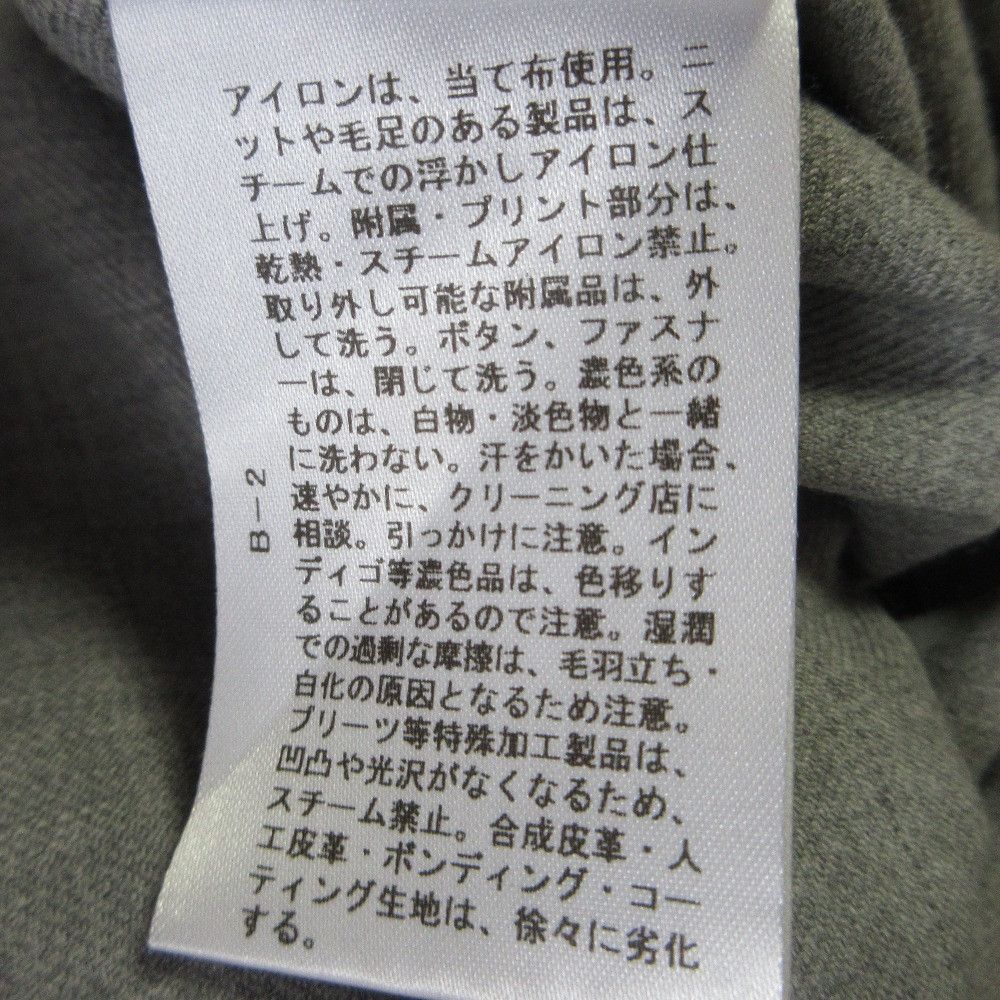 アイロンは、当て布使用。ニ
ットや毛足のある製品は、ス
チームでの浮かしアイロン仕
上げ。附属・プリント部分は、
乾熱・スチームアイロン禁止。
取り外し可能な附属品は、外
して洗う。ボタン、ファスナ
ーは、閉じて洗う。濃色系の
ものは、白物・淡色物と一緒
に洗わない。汗をかいた場合、
速やかに、クリーニング店に
相談。引っかけに注意。イン
ディゴ等濃色品は、色移りす
ることがあるので注意。湿潤
での過剰な摩擦は、毛羽立ち・
白化の原因となるため注意。
プリーツ等特殊加工製品は、
凹凸や光沢がなくなるため、
スチーム禁止。合成皮革・人
工皮革・ボンディング・コー
ティング生地は、徐々に劣化
する。
B-2